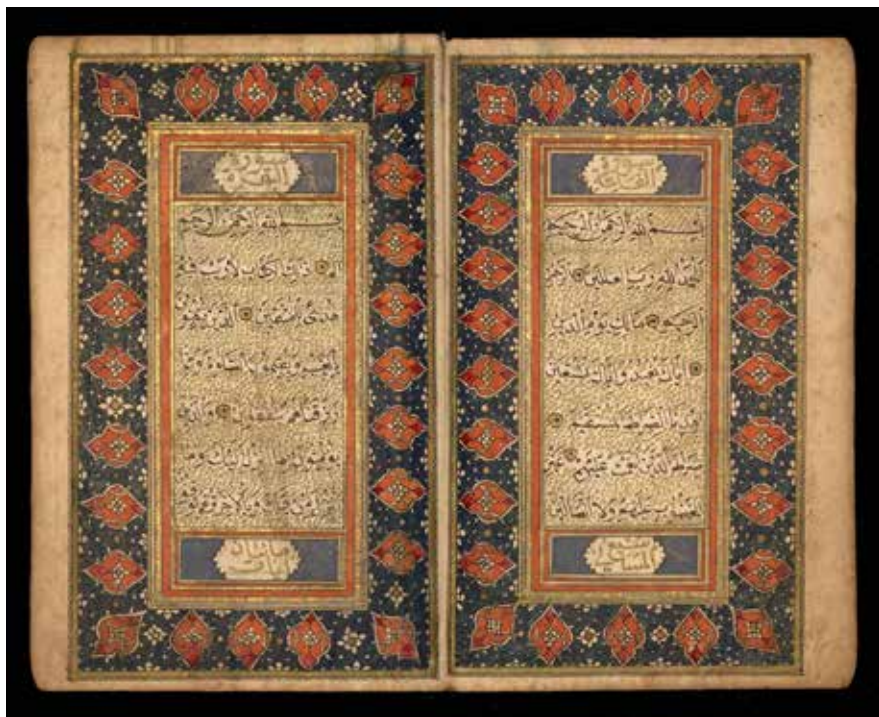 سورة
الفاتحة
بسم الله الرحمن الرحيم
الحمد لله رب العالمين الرحمن
الرحيم مالك يوم الدين
اياك نعبد واياك نستعين
اهدنا الصراط المستقيم
صراط الذين انعمت عليهم غير
المغضوب عليهم ولا الضالين
سورة
البقرة
بسم الله الرحمن الرحيم
الم ذلك الكتاب لا ريب فيه
هدى للمتقين الذين يؤمنون
بالغيب ويقيمون الصلوة ومما
رزقناهم ينفقون والذين
يؤمنون بما انزل اليك وما
انزل من قبلك وبالاخرة هم